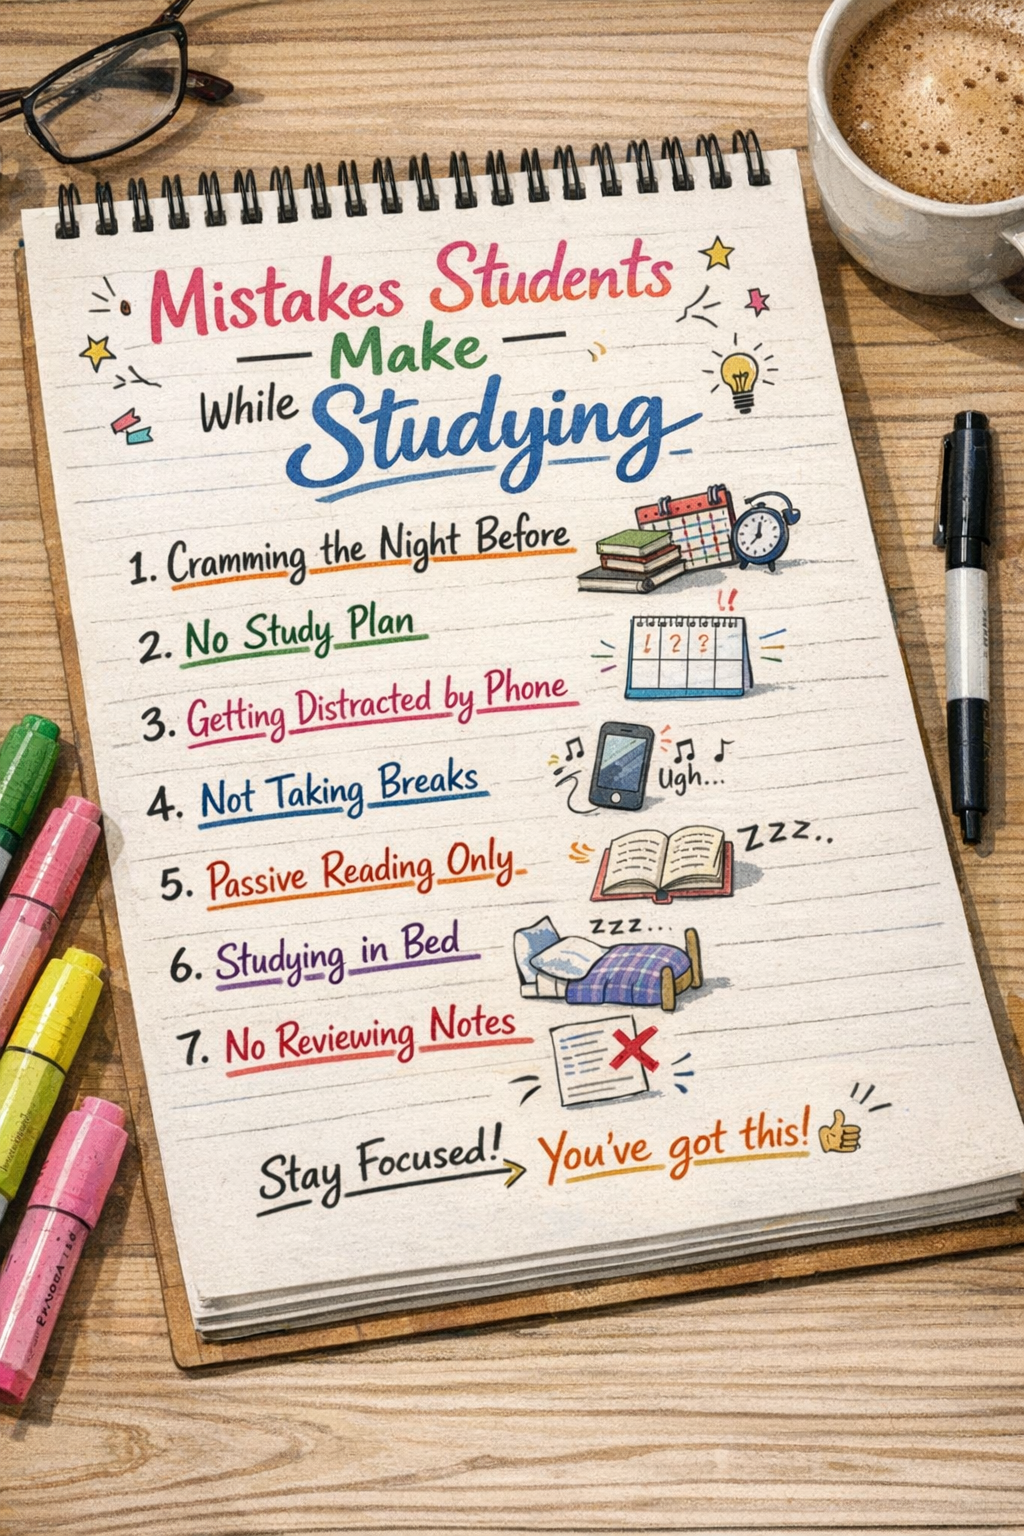 Mistakes Students
Make
While Studying
1. Cramming the Night Before
2. No Study Plan
!!
! ? ?
3. Getting Distracted by Phone
Ugh...
4. Not Taking Breaks
5. Passive Reading Only
zzz..
6. Studying in Bed
zzz...
7. No Reviewing Notes
Stay Focused! You've got this!